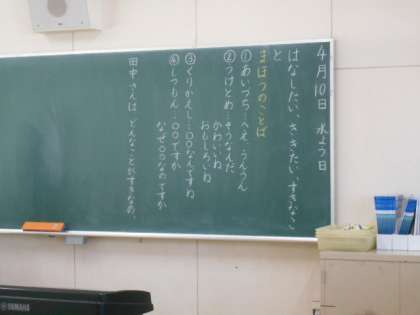 4月10日 水よう日
はなしたい、ききたい、すきなこ
と
まほうのことば
①あいづち…へえ、うんうん
②うけとめ…そうなんだ
かわいいね
おもしろいね
③くりかえし…〇〇なんですね
④しつもん…〇〇ですか
なぜ〇〇なのですか
田中さんは、どんなことがすきなの。
YAMAHA